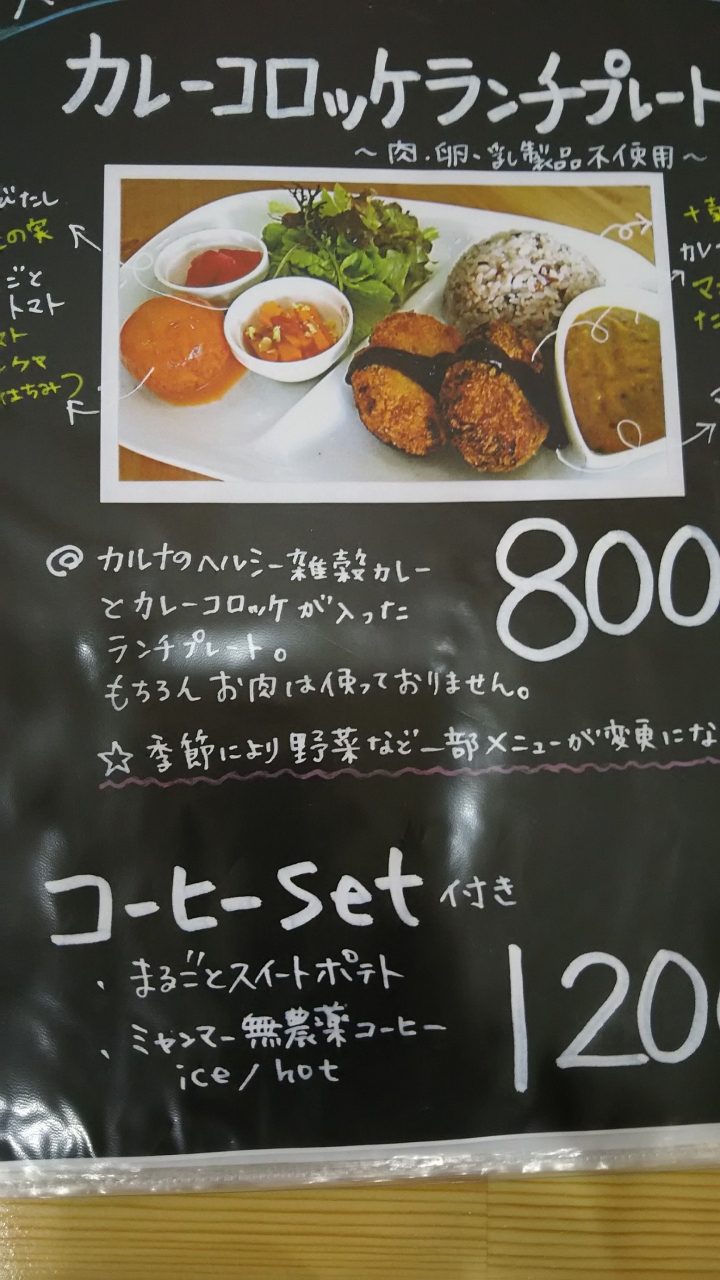 カレーコロッケランチプレート
～肉・卵・乳製品不使用～
びたし
の実
ごと
トマト
はちみつ
カレ
@ カルナのヘルシー雑穀カレー
とカレーコロッケが入った
ランチプレート。
もちろんお肉は使っておりません。
☆ 季節により野菜など一部メニューが変更にな
800
コーヒーset付き
・まるごとスイートポテト
、ミャンマー無農薬コーヒー
ice/hot
120